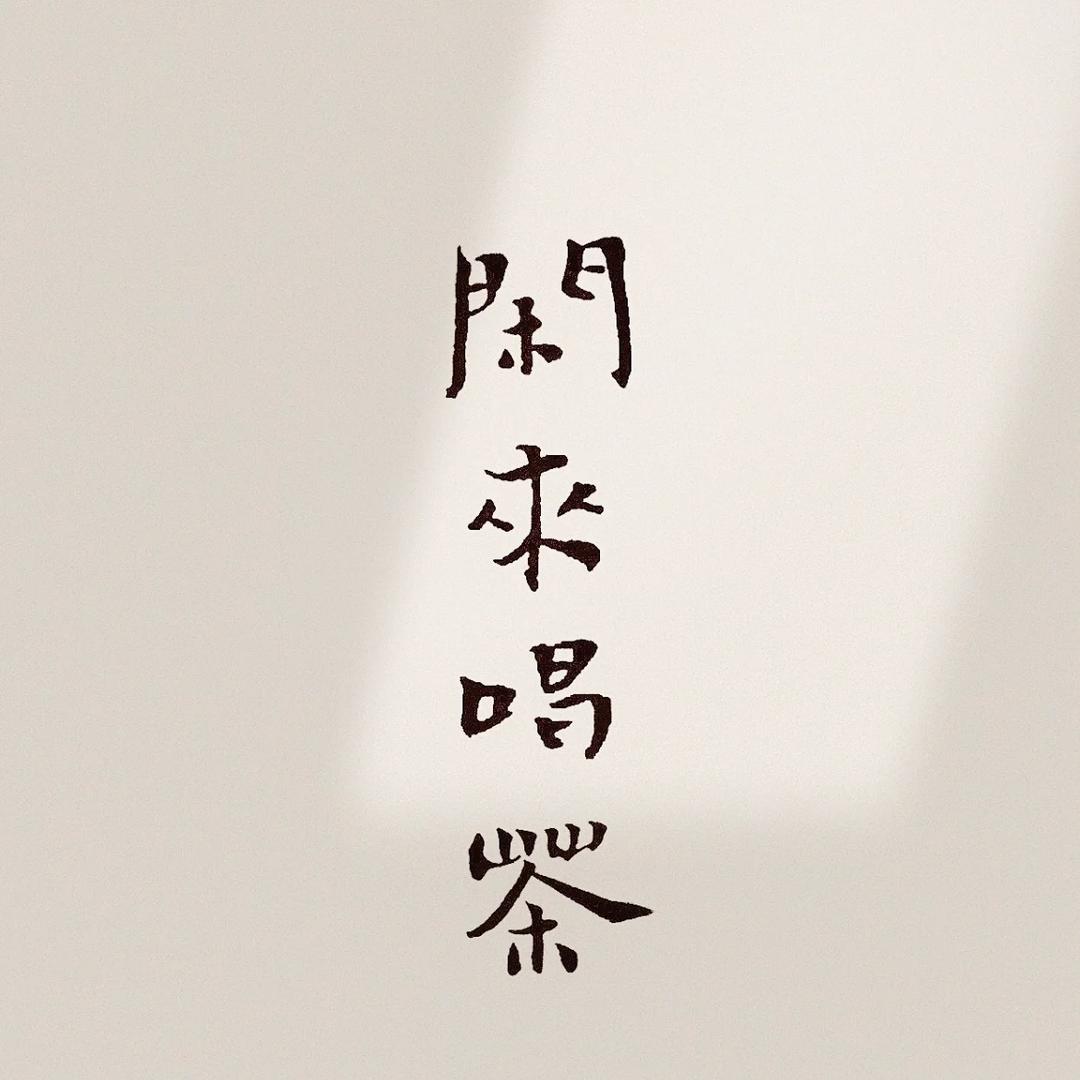 閑來喝茶